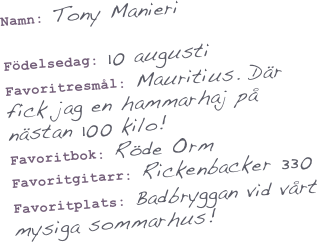 Namn: Tony Manieri
Födelsedag: 10 augusti
Favoritresmål: Mauritius. Där
fick jag en hammarhaj på
nästan 100 kilo!
Favoritbok: Röde Orm
Favoritgitarr: Rickenbacker 330
Favoritplats: Badbryggan vid vårt
mysiga sommarhus!